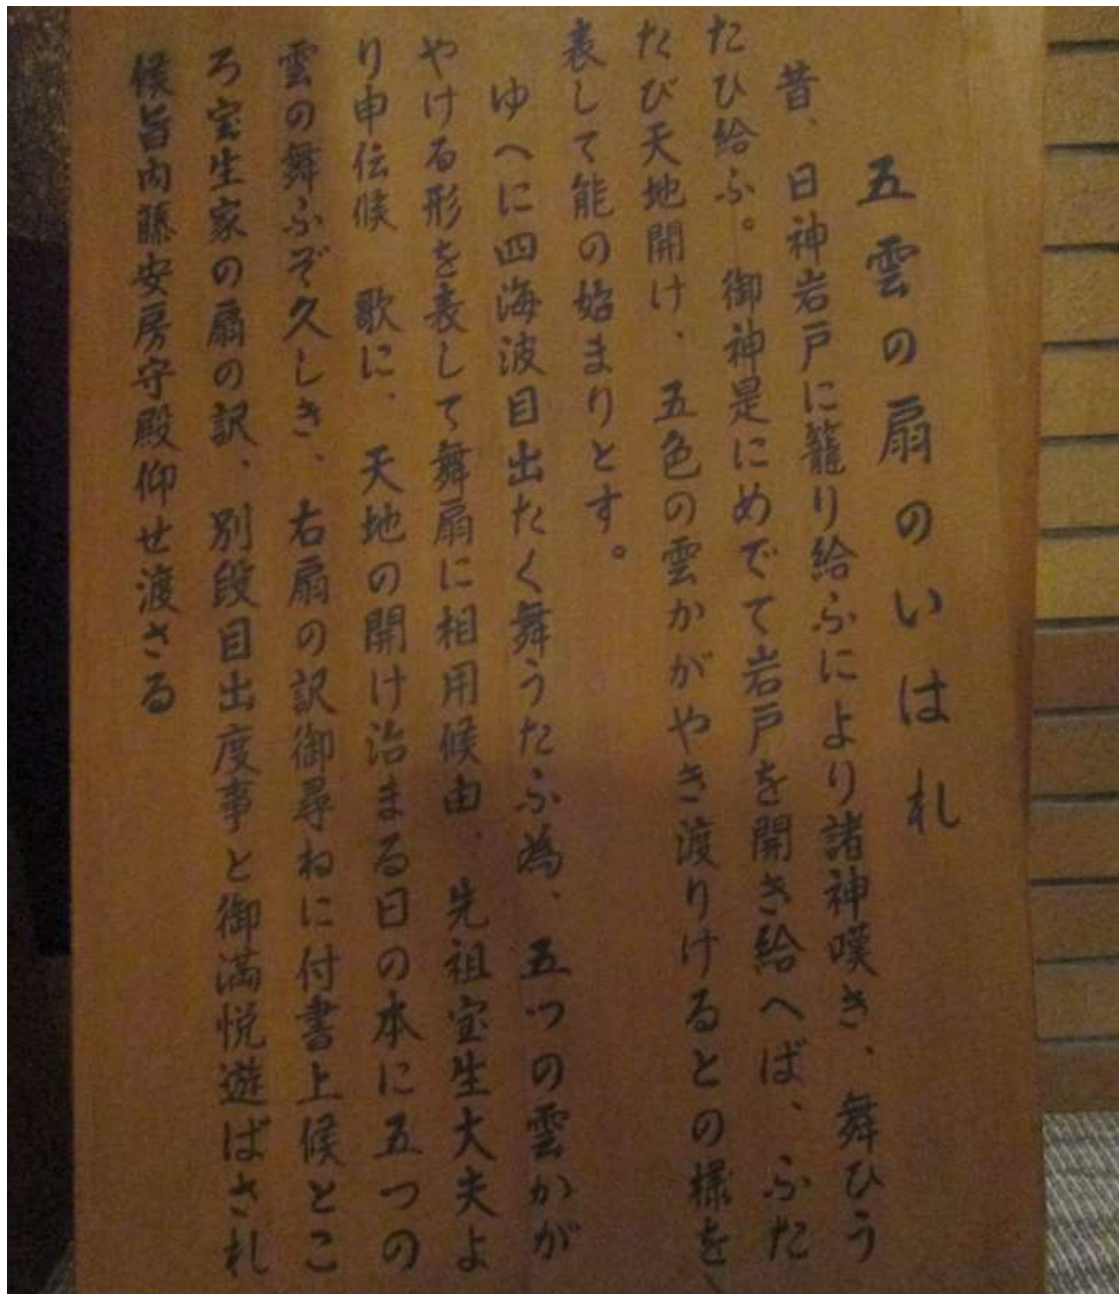 五雲の扇のいはれ
昔、日神岩戸に籠り給ふにより諸神嘆き、舞ひう
たひ給ふ。御神是にめでて岩戸を開き給へば、ふた
たび天地開け、五色の雲かがやき渡りけるとの様を
表して能の始まりとす。
ゆへに四海波目出たく舞うたふ為、五つの雲かが
やける形を表して舞扇に相用候由、先祖宝生大夫よ
り申伝候　歌に、天地の開け治まる日の本に五つの
雲の舞ふぞ久しき、右扇の訳御尋ねに付書上候とこ
ろ宝生家の扇の訳、別段目出度事と御満悦遊ばされ
候旨内藤安房守殿仰せ渡さる